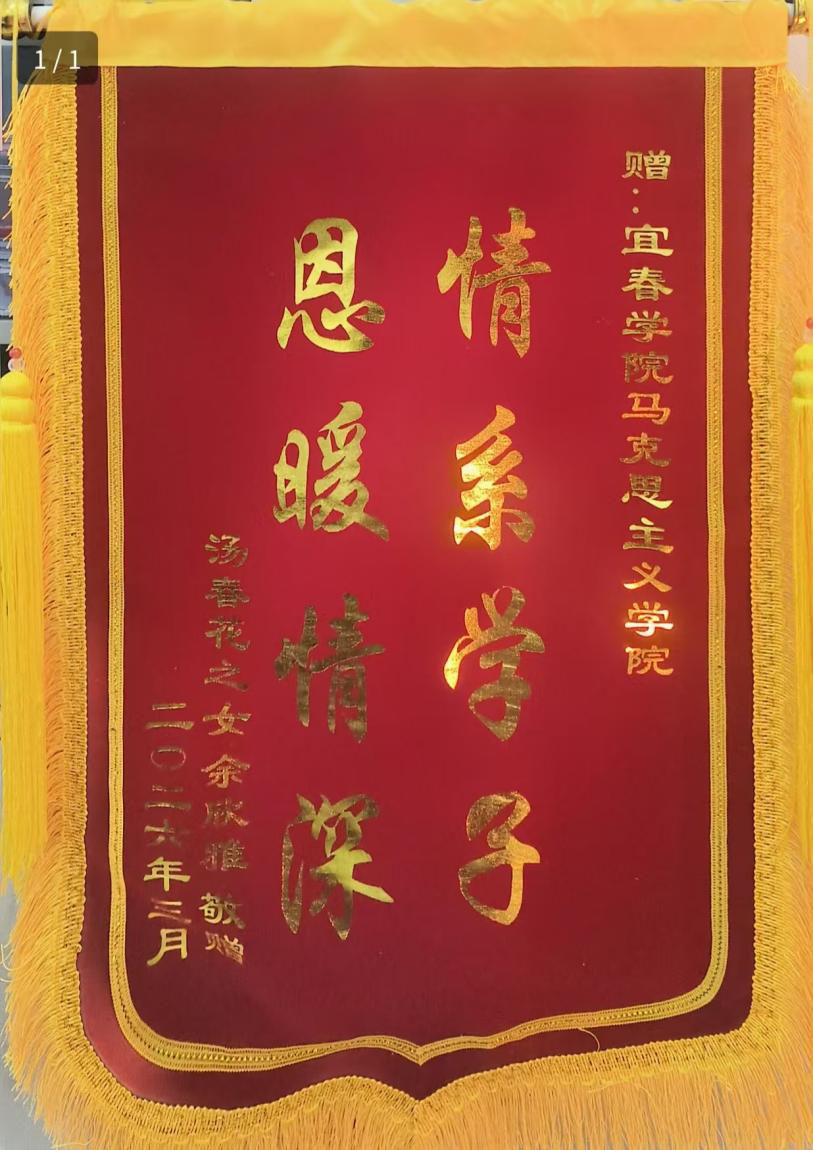 1/1
赠：宜春学院马克思主义学院
情系学子
恩暖情深
汤春花之女余欣雅敬赠
二〇二六年三月